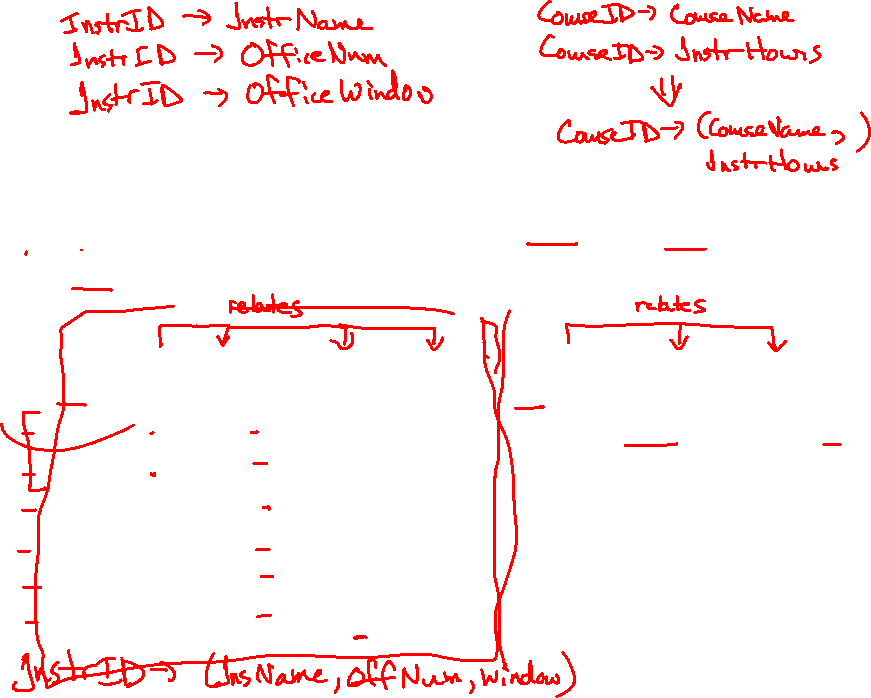 InstrID → InstrName
InstrID → OfficeNum
InstrID → OfficeWindow
CourseID → CourseName
CourseID → InstrHours
CourseID → (CourseName, InstrHours)
relates
relates
InstrID → (InsName, OffNum, Window)